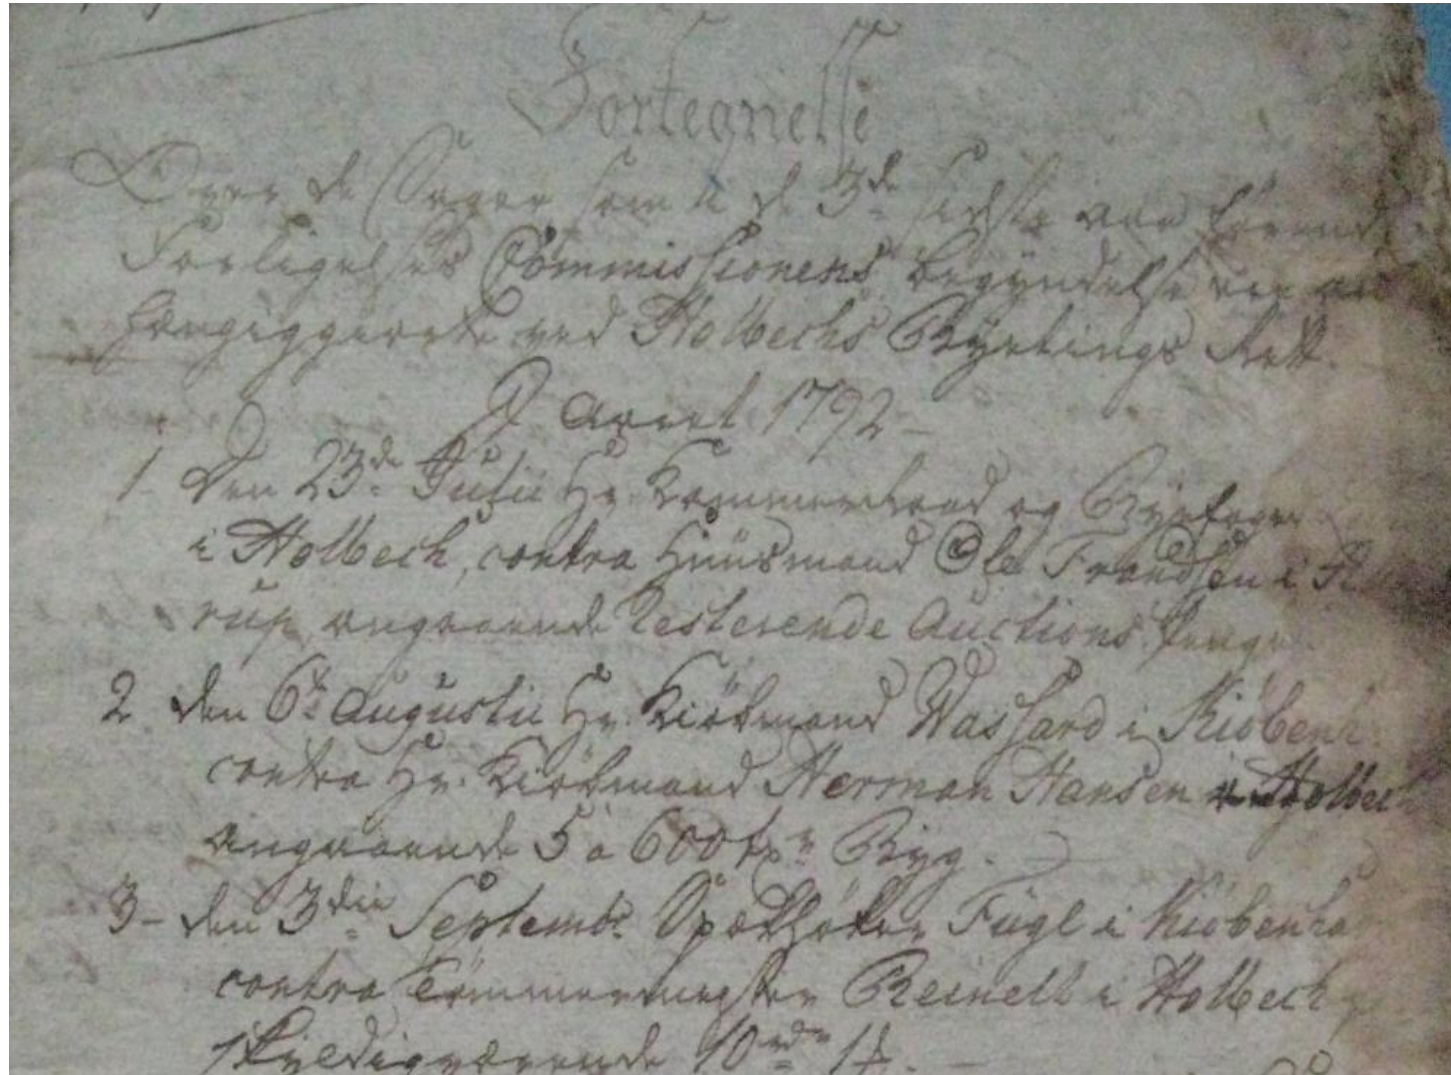 Fortegnelse
Over de Sager som i de 3de sidste Aar förend
Forligelses Commissionens begyndelse var an
hængiggiorte ved Holbechs Byetings Rett.
Aaret 1792
1 Den 23de Julii Hr. Kammerraad og Byefoged
i Holbech, contra Huusmand Ole Frandsen i
rup angaaende Resterende Auctions Penge
2 den 6te Augustii Hr. Kiöbmand Wassard i Kiöbenh
contra Hr. Kiöbmand Herman Hansen i Holbech
angaaende 5 a 600 Byg.
3 - den 3die Septembr. Apotheker Fugl i Kiöbenha
contra Tömmermester Reinelt i Holbech
skyldigværende 10